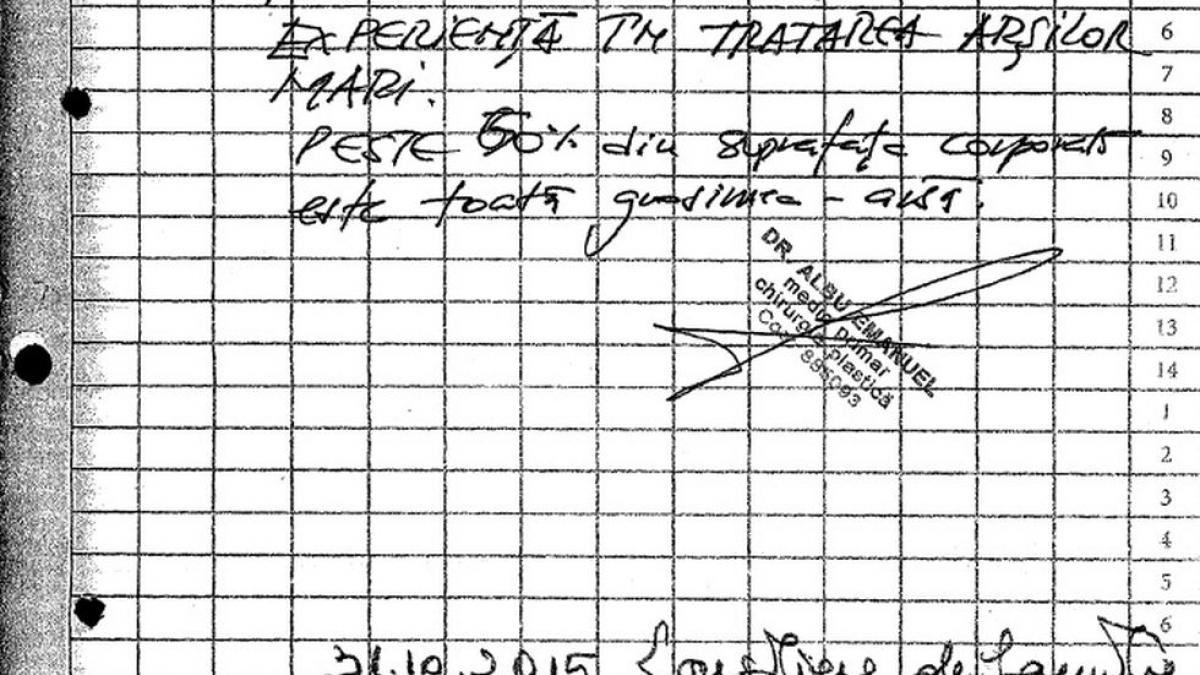 EXPERIENȚĂ ÎN TRATAREA ARȘILOR
MARI.
PESTE 50% din suprafața corporală
este toată grosimea - arsă.
DR. ALBU EMANUEL
medic primar
chirurgie plastică
Cod 895093
31.10.2015 de
6
7
8
9
10
11
12
13
14
1
2
3
4
5
6